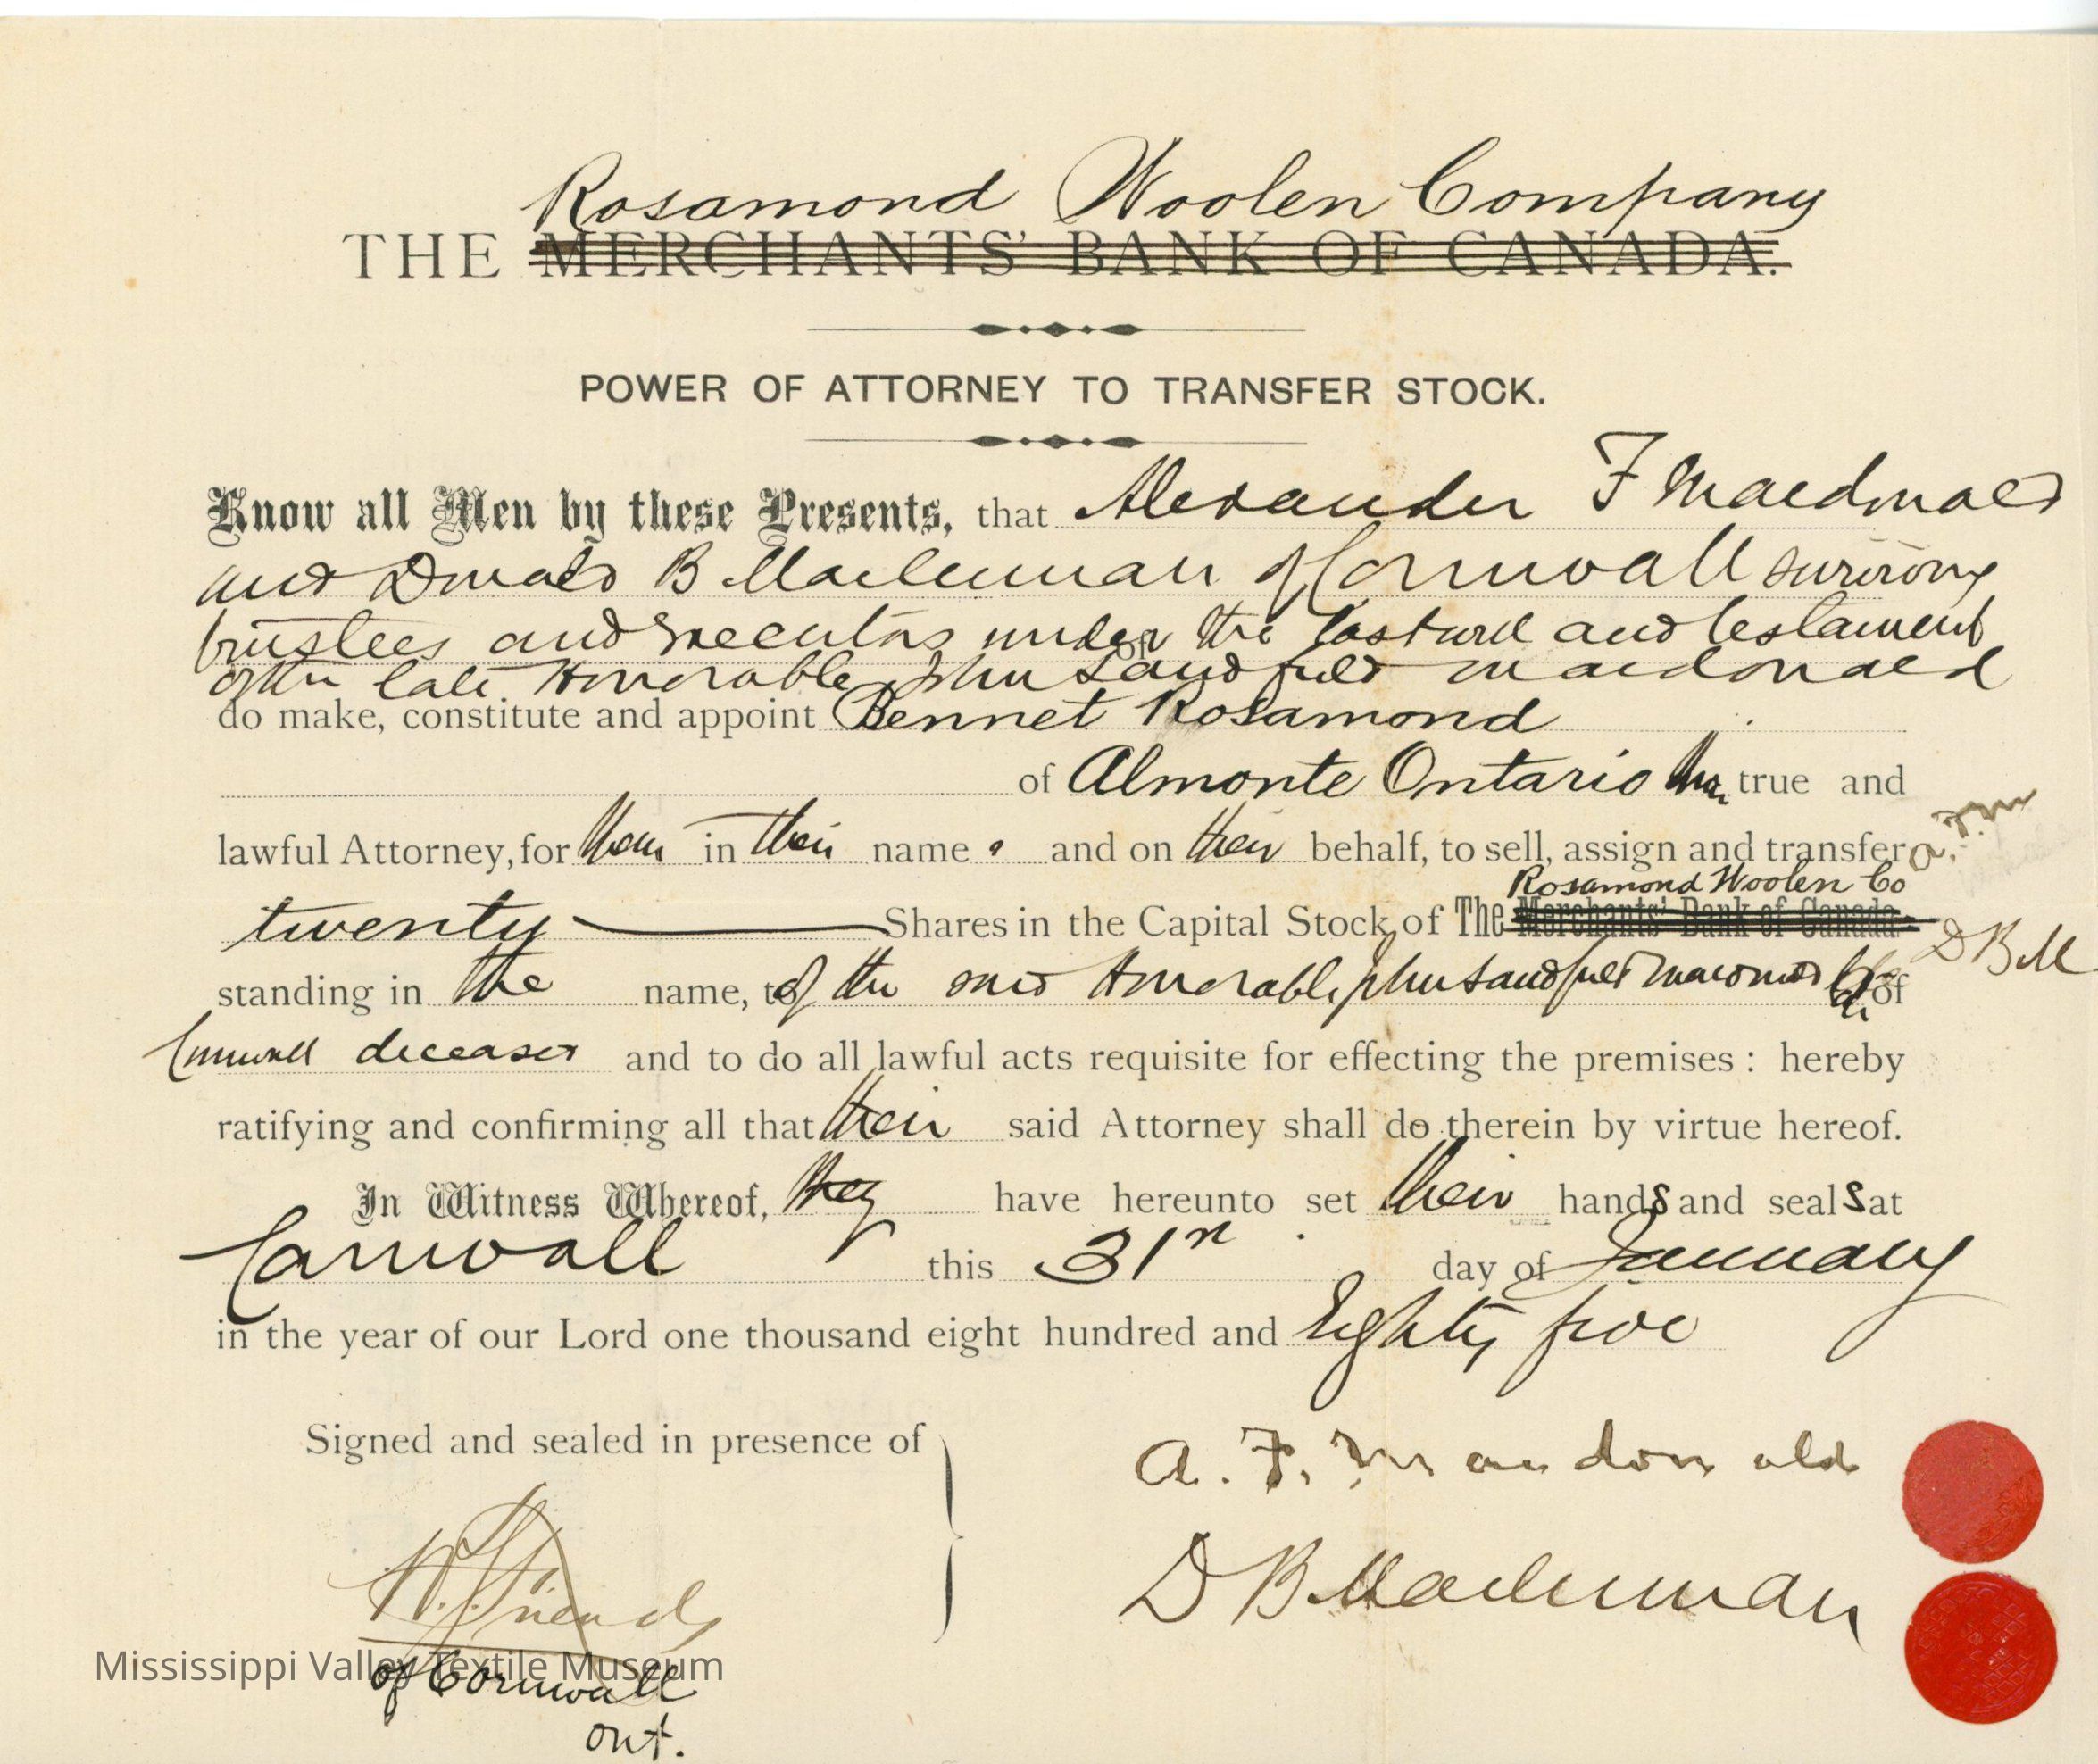 Rosamond Woolen Company
THE MERCHANTS' BANK OF CANADA.
POWER OF ATTORNEY TO TRANSFER STOCK.
Know all Men by these Presents, that Alexander F Macdonald
and Donald B Maclennan of Cornwall surviving
trustees and Executors under the last will and testament
of the late Honorable John Sandfield Macdonald
do make, constitute and appoint Bennet Rosamond
of Almonte Ontario true and
lawful Attorney, for them in their name s and on their behalf, to sell, assign and transfer
Rosamond Woolen Co
twenty Shares in the Capital Stock of The Merchants' Bank of Canada
D B M
standing in the name, of the said Honorable John Sandfield Macdonald of
Cornwall deceased and to do all lawful acts requisite for effecting the premises : hereby
ratifying and confirming all that their said Attorney shall do therein by virtue hereof.
In Witness Whereof, they have hereunto set their hands and seals at
Cornwall this 31st day of January
in the year of our Lord one thousand eight hundred and Eighty five
Signed and sealed in presence of
A. F. Macdonald
D B Maclennan
of Cornwall
Ont.
Mississippi Valley Textile Museum